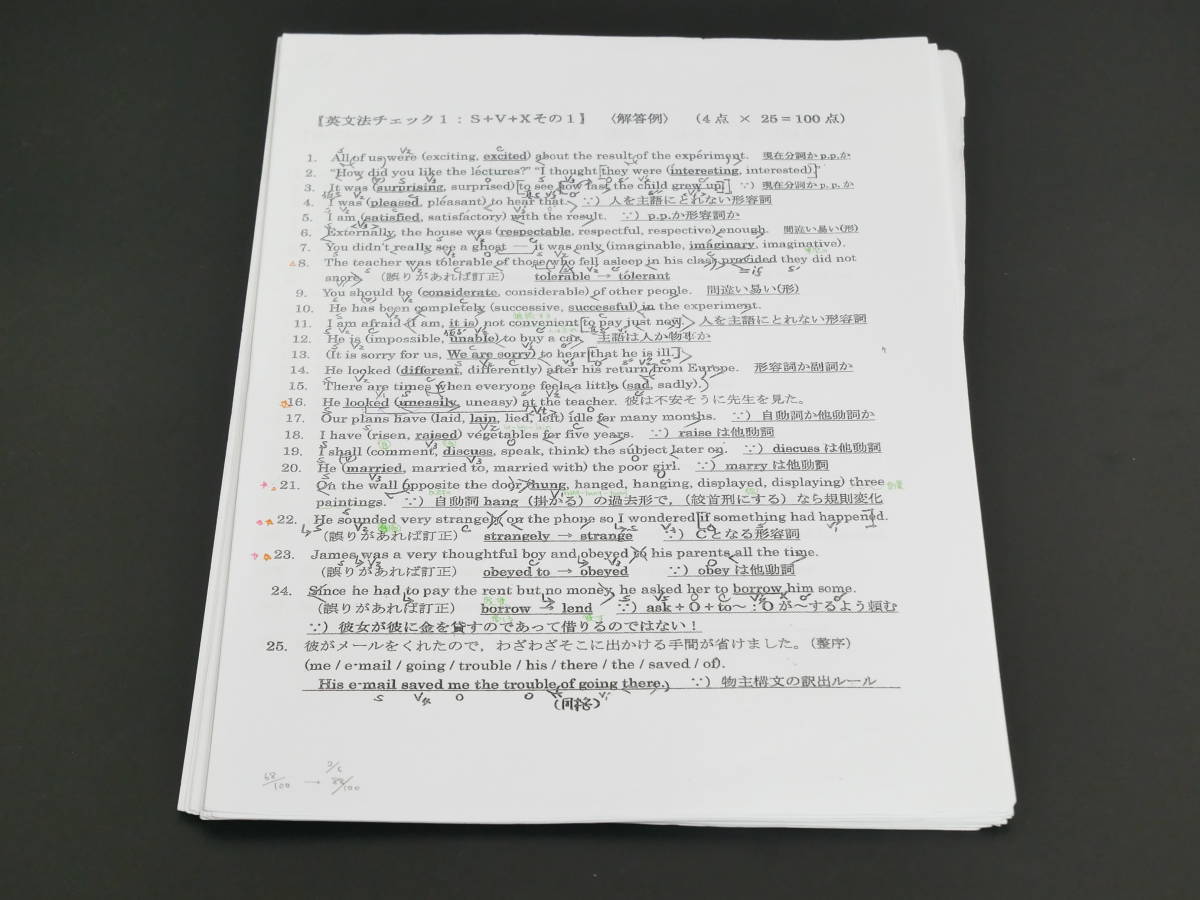 【英文法チェック１：Ｓ+Ｖ+Ｘその１】 〈解答例〉 （4点 × 25＝100点）
1. All of us were (exciting, excited) about the result of the experiment. 現在分詞か p.p.か
2. "How did you like the lectures?" "I thought they were (interesting, interested)."
3. It was (surprising, surprised) to see how fast the child grew up. ∵）現在分詞か p.p.か
4. I was (pleased, pleasant) to hear that. ∵）人を主語にとれない形容詞
5. I am (satisfied, satisfactory) with the result. ∵）p.p.か形容詞か
6. Externally, the house was (respectable, respectful, respective) enough. 間違い易い(形)
7. You didn't really see a ghost ― it was only (imaginable, imaginary, imaginative).
8. The teacher was tolerable of those who fell asleep in his class provided they did not
snore. （誤りがあれば訂正） tolerable → tolerant
9. You should be (considerate, considerable) of other people. 間違い易い(形)
10. He has been completely (successive, successful) in the experiment.
11. I am afraid (I am, it is) not convenient to pay just now. 人を主語にとれない形容詞
12. He is (impossible, unable) to buy a car. 主語は人か物事か
13. (It is sorry for us, We are sorry) to hear that he is ill.
14. He looked (different, differently) after his return from Europe. 形容詞か副詞か
15. There are times when everyone feels a little (sad, sadly).
16. He looked (uneasily, uneasy) at the teacher. 彼は不安そうに先生を見た。
17. Our plans have (laid, lain, lied, left) idle for many months. ∵）自動詞か他動詞か
18. I have (risen, raised) vegetables for five years. ∵）raise は他動詞
19. I shall (comment, discuss, speak, think) the subject later on. ∵）discuss は他動詞
20. He (married, married to, married with) the poor girl. ∵）marry は他動詞
21. On the wall opposite the door (hung, hanged, hanging, displayed, displaying) three
paintings. ∵）自動詞 hang（掛かる）の過去形で，（絞首刑にする）なら規則変化
22. He sounded very strangely on the phone so I wondered if something had happened.
（誤りがあれば訂正） strangely → strange ∵）Ｃとなる形容詞
23. James was a very thoughtful boy and obeyed to his parents all the time.
（誤りがあれば訂正） obeyed to → obeyed ∵）obey は他動詞
24. Since he had to pay the rent but no money, he asked her to borrow him some.
（誤りがあれば訂正） borrow → lend ∵）ask＋Ｏ＋to～：Ｏが～するよう頼む
∵）彼女が彼に金を貸すのであって借りるのではない！
25. 彼がメールをくれたので，わざわざそこに出かける手間が省けました。（整序）
(me / e-mail / going / trouble / his / there / the / saved / of).
His e-mail saved me the trouble of going there. ∵）物主構文の訳出ルール
S V4 O O (同格)
68/100 → 88/100